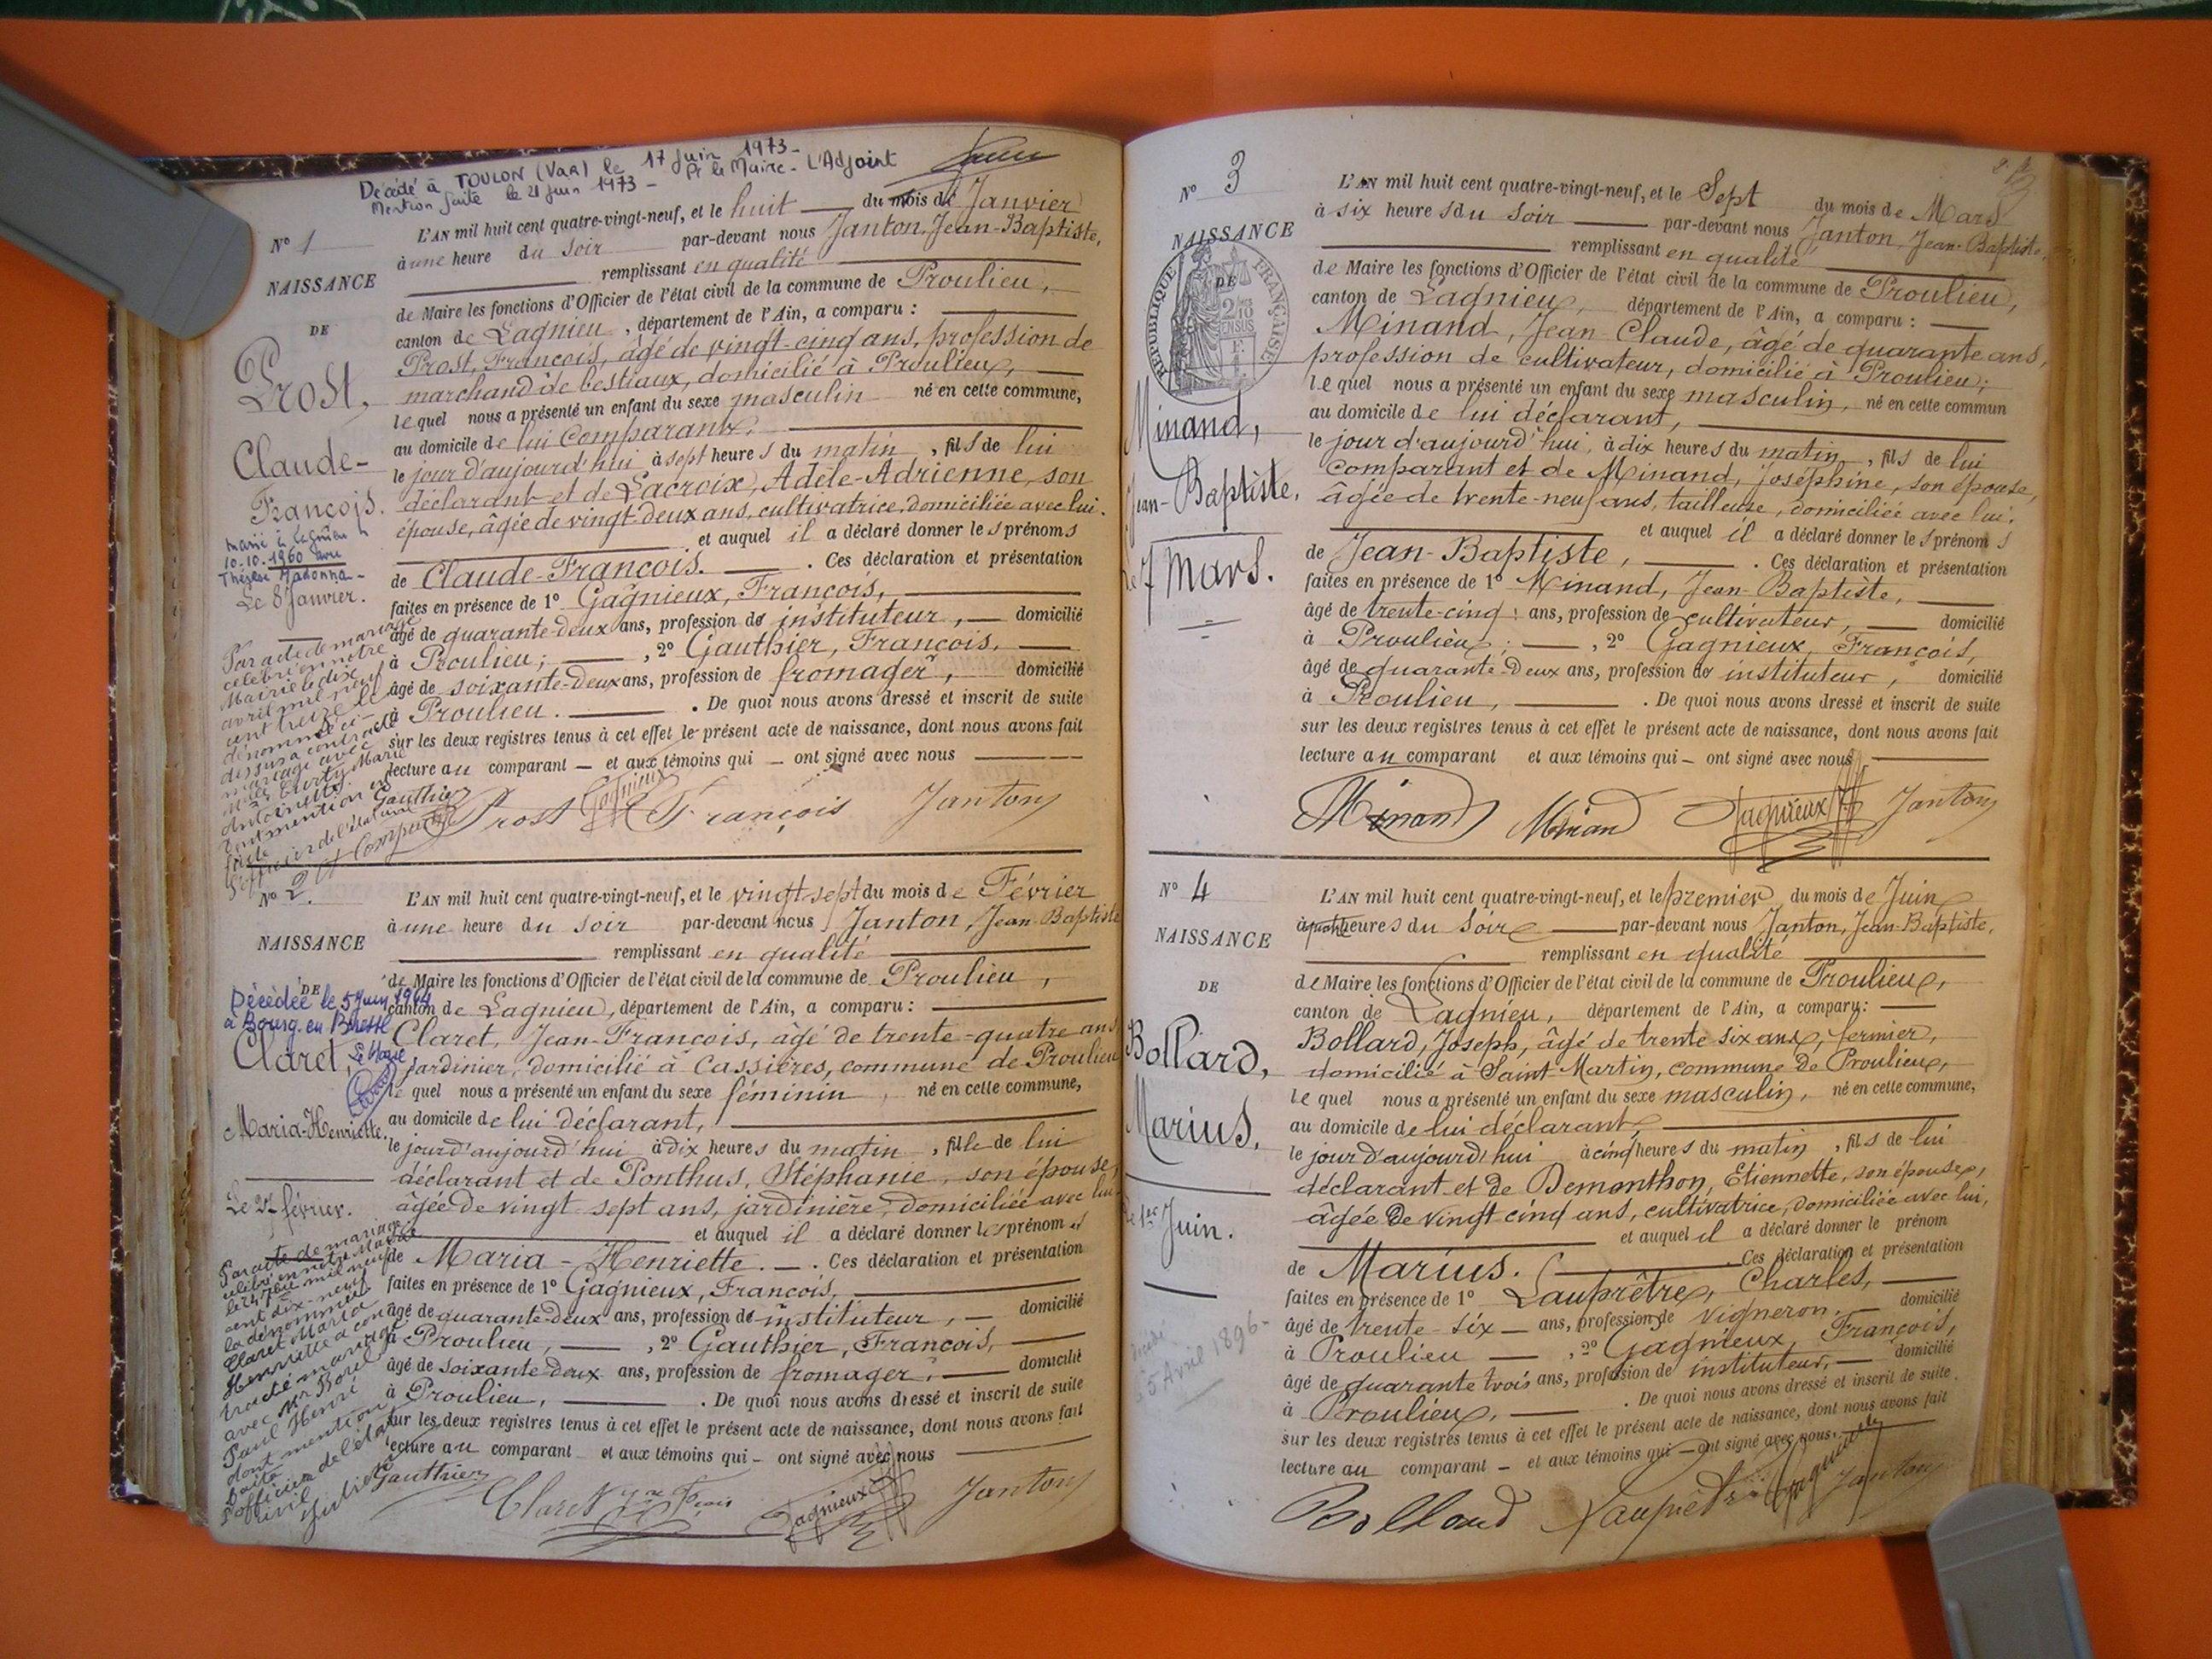 Décédé à TOULON (VAR) le 17 Juin 1973 -
Mention faite le 21 Juin 1973 - Pr le Maire - L'Adjoint
N° 1
NAISSANCE
DE
Prost,
Claude-
François.
marié à Lagnieu
10.10.1960 avec
Thérèse Madonna -
Le 8 Janvier.
Par acte de mariage
célébré en notre
Mairie le dix
avril mil neuf
cent treize le
dénommé ci-
dessus a contracté
mariage avec
Antoinette
dont mention est
faite
L'officier de l'état civil
Gauthier
L'AN mil huit cent quatre-vingt-neuf, et le huit du mois de Janvier
à une heure du soir par-devant nous Janton, Jean-Baptiste,
remplissant en qualité
de Maire les fonctions d'Officier de l'état civil de la commune de Proulieu,
canton de Lagnieu, département de l'Ain, a comparu :
Prost, François, âgé de vingt-cinq ans, profession de
marchand de bestiaux, domicilié à Proulieu,
lequel nous a présenté un enfant du sexe masculin né en cette commune,
au domicile de lui Comparant,
le jour d'aujourd'hui à sept heures du matin, fils de lui
déclarant et de Lacroix, Adèle-Adrienne, son
épouse, âgée de vingt-deux ans, cultivatrice, domiciliée avec lui.
et auquel il a déclaré donner les prénoms
de Claude-François. . Ces déclaration et présentation
faites en présence de 1° Gagnieux, François,
âgé de quarante-deux ans, profession de instituteur, domicilié
à Proulieu; , 2° Gauthier, François,
âgé de soixante-deux ans, profession de fromager, domicilié
à Proulieu. . De quoi nous avons dressé et inscrit de suite
sur les deux registres tenus à cet effet le présent acte de naissance, dont nous avons fait
lecture au comparant — et aux témoins qui — ont signé avec nous
Prost Gagnieux François Janton
N° 2.
NAISSANCE
DE
Décédée le 5 Juin 1964
à Bourg en Bresse
Le Maire
Claret,
Maria-Henriette.
Le 27 février.
Par acte de mariage
célébré en notre Mairie
le 24 7bre mil neuf
cent dix-neuf
la dénommée
Claret Maria
Henriette a con-
tracté mariage
avec Mr Borel
Paul Henri
dont mention
faite
L'officier de l'état
civil
Gauthier
L'AN mil huit cent quatre-vingt-neuf, et le vingt sept du mois de Février
à une heure du soir par-devant nous Janton, Jean-Baptiste
remplissant en qualité
de Maire les fonctions d'Officier de l'état civil de la commune de Proulieu,
canton de Lagnieu, département de l'Ain, a comparu :
Claret, Jean-François, âgé de trente-quatre ans
jardinier, domicilié à Cassières, commune de Proulieu
lequel nous a présenté un enfant du sexe féminin, né en cette commune,
au domicile de lui déclarant,
le jour d'aujourd'hui à dix heures du matin, fille de lui
déclarant et de Ponthus, Stéphanie, son épouse,
âgée de vingt sept ans, jardinière, domiciliée avec lui
et auquel il a déclaré donner les prénoms
de Maria-Henriette. — . Ces déclaration et présentation
faites en présence de 1° Gagnieux, François,
âgé de quarante-deux ans, profession de instituteur, — domicilié
à Proulieu, , 2° Gauthier, François,
âgé de soixante deux ans, profession de fromager, domicilié
à Proulieu, . De quoi nous avons dressé et inscrit de suite
sur les deux registres tenus à cet effet le présent acte de naissance, dont nous avons fait
lecture au comparant et aux témoins qui — ont signé avec nous
Claret Gagnieux Janton
N° 3
NAISSANCE
DE
RÉPUBLIQUE FRANÇAISE
Minand,
Jean-Baptiste.
Le 7 Mars.
L'AN mil huit cent quatre-vingt-neuf, et le Sept du mois de Mars
à six heures du soir par-devant nous Janton, Jean-Baptiste,
remplissant en qualité
de Maire les fonctions d'Officier de l'état civil de la commune de Proulieu,
canton de Lagnieu, département de l'Ain, a comparu :
Minand, Jean-Claude, âgé de quarante ans,
profession de cultivateur, domicilié à Proulieu;
lequel nous a présenté un enfant du sexe masculin, né en cette commun
au domicile de lui déclarant,
le jour d'aujourd'hui, à dix heures du matin, fils de lui
Comparant et de Minand, Joséphine, son épouse,
âgée de trente-neuf ans, tailleuse, domiciliée avec lui.
et auquel il a déclaré donner les prénoms
de Jean-Baptiste, . Ces déclaration et présentation
faites en présence de 1° Minand, Jean-Baptiste,
âgé de trente-cinq ans, profession de cultivateur, domicilié
à Proulieu; , 2° Gagnieux, François,
âgé de quarante-deux ans, profession de instituteur, domicilié
à Proulieu, . De quoi nous avons dressé et inscrit de suite
sur les deux registres tenus à cet effet le présent acte de naissance, dont nous avons fait
lecture au comparant et aux témoins qui — ont signé avec nous
Minand Minand Gagnieux Janton
N° 4
NAISSANCE
DE
Bollard,
Marius.
Le 1er Juin.
Décédé
5 Avril 1896-
L'AN mil huit cent quatre-vingt-neuf, et le premier du mois de Juin
à quatre heures du soir par-devant nous Janton, Jean-Baptiste,
remplissant en qualité
de Maire les fonctions d'Officier de l'état civil de la commune de Proulieu,
canton de Lagnieu, département de l'Ain, a comparu :
Bollard, Joseph, âgé de trente six ans, fermier,
domicilié à Saint-Martin, commune de Proulieu,
lequel nous a présenté un enfant du sexe masculin, né en cette commune,
au domicile de lui déclarant,
le jour d'aujourd'hui à cinq heures du matin, fils de lui
déclarant et de Demonthon, Etiennette, son épouse,
âgée de vingt cinq ans, cultivatrice, domiciliée avec lui,
et auquel il a déclaré donner le prénom
de Marius. . Ces déclaration et présentation
faites en présence de 1° Lauprêtre, Charles,
âgé de trente-six — ans, profession de vigneron, domicilié
à Proulieu — , 2° Gagnieux, François,
âgé de quarante trois ans, profession de instituteur, domicilié
à Proulieu, . De quoi nous avons dressé et inscrit de suite
sur les deux registres tenus à cet effet le présent acte de naissance, dont nous avons fait
lecture au comparant — et aux témoins qui — ont signé avec nous.
Bollard Lauprêtre Gagnieux Janton